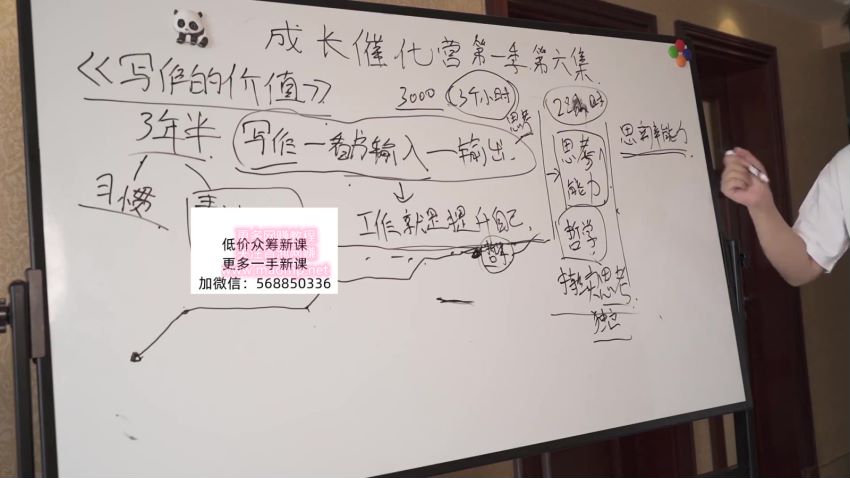 成长催化营第一季第六集
《写作的价值》
3000 (3个小时)
3年半
写作—看书输入—输出
思考
习惯
工作就是提升自己
思考
能力
哲学
持续思考
独立
思考能力
低价众筹新课
更多一手新课
加微信：568850336